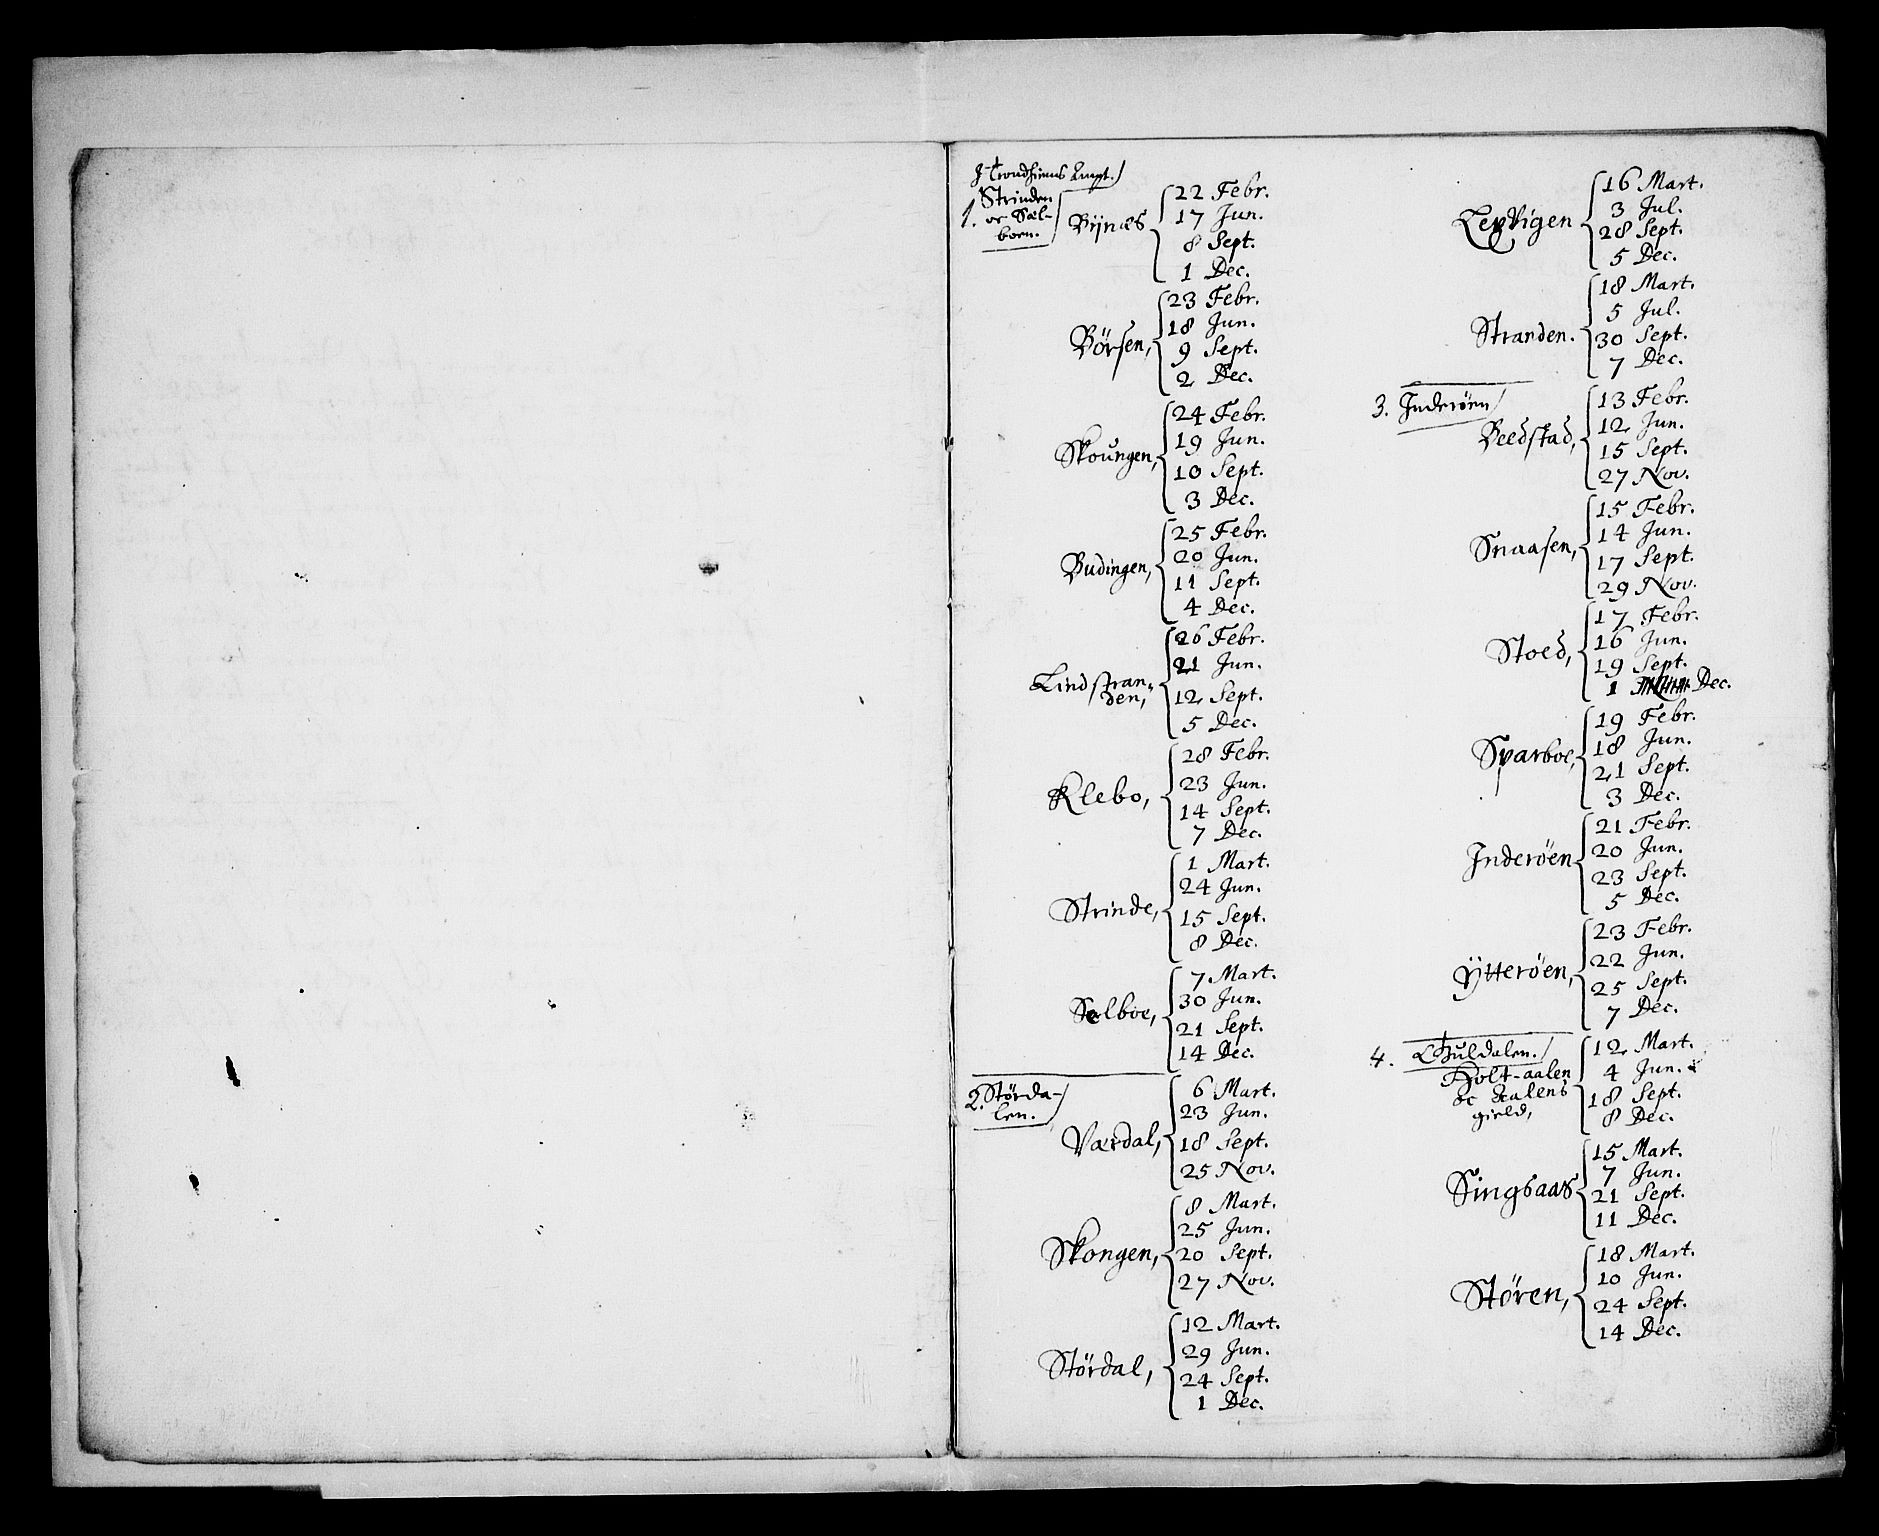 J Trondhiems Ampt.
1. Strinden
oc Sæl-
boen.
Bÿnæs
22 Febr.
17 Jun.
8 Sept.
1 Dec.
Børsen,
23 Febr.
18 Jun.
9 Sept.
2 Dec.
Skoungen,
24 Febr.
19 Jun.
10 Sept.
3 Dec.
Budingen,
25 Febr.
20 Jun.
11 Sept.
4 Dec.
Lindstran-
den,
26 Febr.
21 Jun.
12 Sept.
5 Dec.
Klebo,
28 Febr.
23 Jun.
14 Sept.
7 Dec.
Strinde,
1 Mart.
24 Jun.
15 Sept.
8 Dec.
Selboe,
7 Mart.
30 Jun.
21 Sept.
14 Dec.
2. Størda-
len.
Værdal,
6 Mart.
23 Jun.
18 Sept.
25 Nov.
Skongen,
8 Mart.
25 Jun.
20 Sept.
27 Nov.
Størdal,
12 Mart.
29 Jun.
24 Sept.
1 Dec.
LexVigen
16 Mart.
3 Jul.
28 Sept.
5 Dec.
Stranden.
18 Mart.
5 Jul.
30 Sept.
7 Dec.
3. Inderøen
Beedstad,
13 Febr.
12 Jun.
15 Sept.
27 Nov.
Snaasen,
15 Febr.
14 Jun.
17 Sept.
29 Nov.
Stoed,
17 Febr.
16 Jun.
19 Sept.
1 Dec.
Sparboe,
19 Febr.
18 Jun.
21 Sept.
3 Dec.
Inderøen
21 Febr.
20 Jun.
23 Sept.
5 Dec.
Ÿtterøen,
23 Febr.
22 Jun.
25 Sept.
7 Dec.
4. Guldalen.
Holt-aalen
oc Aalens
gield,
12 Mart.
4 Jun.
18 Sept.
8 Dec.
Singsaas
15 Mart.
7 Jun.
21 Sept.
11 Dec.
Støren,
18 Mart.
10 Jun.
24 Sept.
14 Dec.